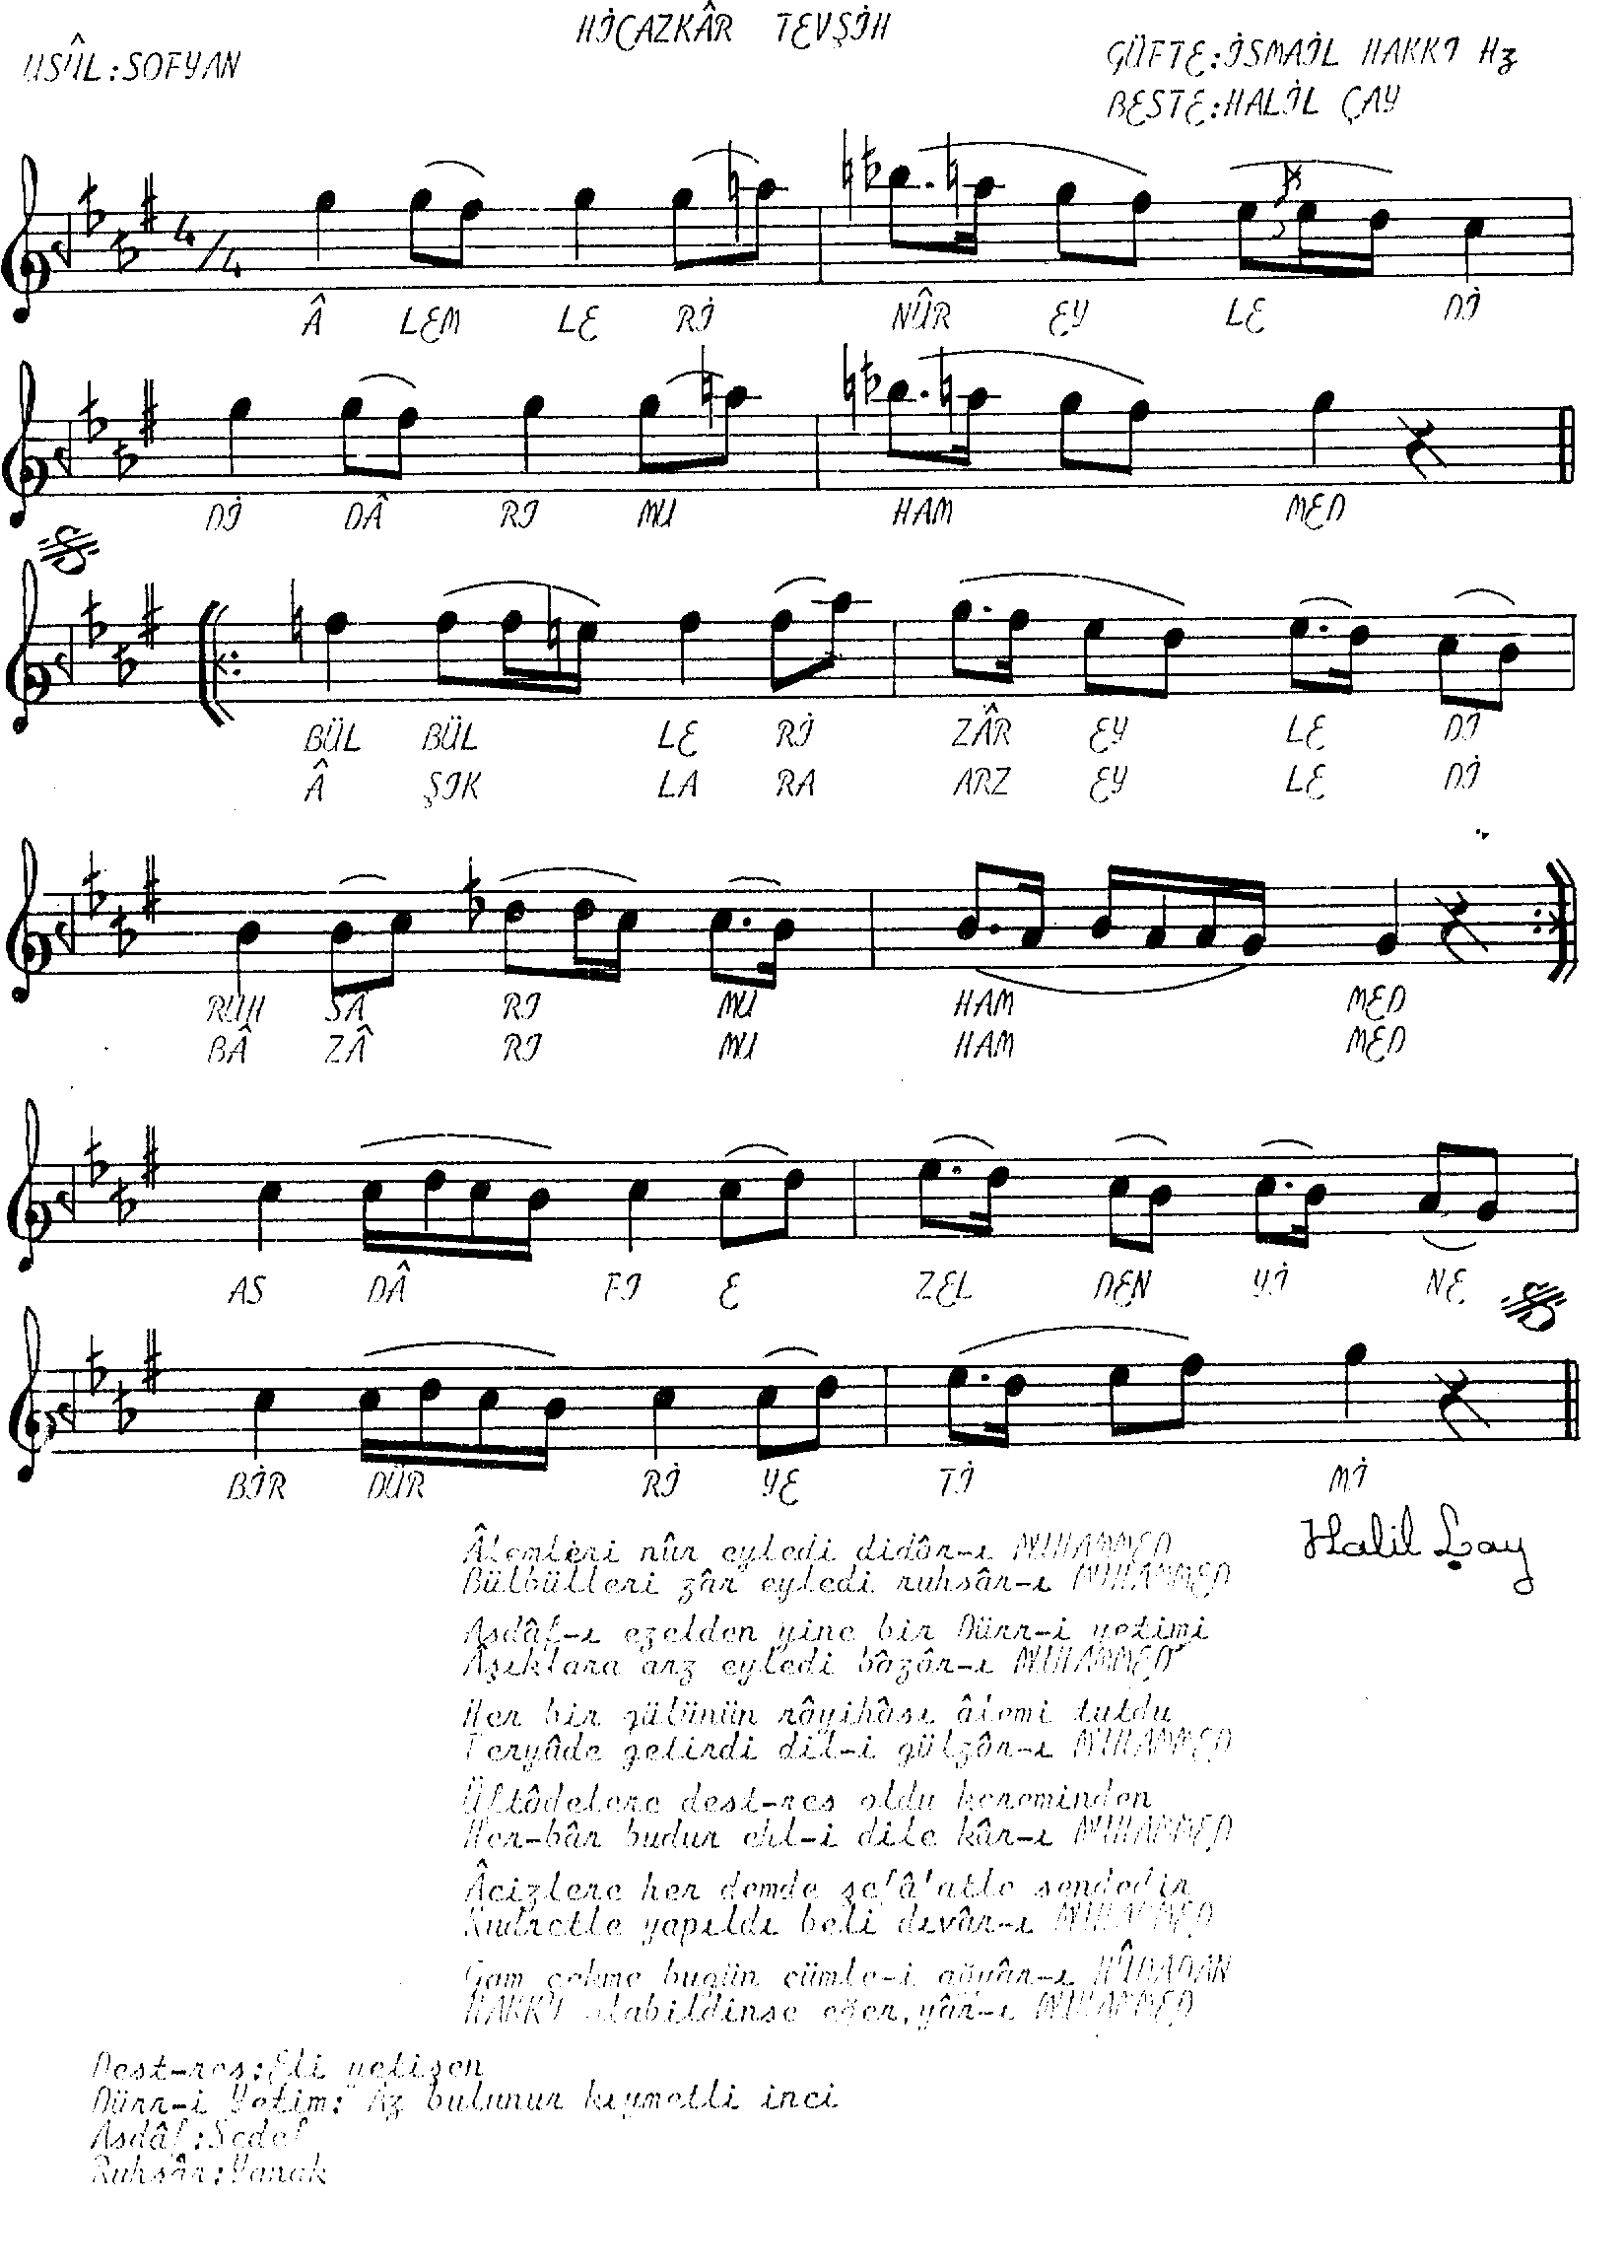 HİCAZKÂR TEVŞİH
USÛL:SOFYAN
GÜFTE:İSMAİL HAKKI Hz
BESTE:HALİL ÇAY
4/4
Â LEM LE Rİ NÛR EY LE Dİ
Dİ DÂ RI MU HAM MED
BÜL BÜL LE Rİ ZÂR EY LE Dİ
Â ŞIK LA RA ARZ EY LE Dİ
RUH SÂ RI MU HAM MED
BÂ ZÂ RI MU HAM MED
AS DÂ FI E ZEL DEN Yİ NE
BİR DÜR Rİ YE Tİ Mİ
Halil Çay
Âlemleri nûr eyledi didâr-ı MUHAMMED
Bülbülleri zâr eyledi ruhsâr-ı MUHAMMED
Asdâf-ı ezelden yine bir Dürr-i yetimi
Âşıklara arz eyledi bâzâr-ı MUHAMMED
Her bir gülünün râyihâsı âlemi tutdu
Feryâde getirdi dil-i gülzâr-ı MUHAMMED
Üftâdelere dest-res oldu kereminden
Her-bâr budur ehl-i dile kâr-ı MUHAMMED
Âcizlere her demde şefâ'atle sendedir
Kudretle yapıldı beli dıvâr-ı MUHAMMED
Gam çekme bugün cümle-i ağyâr-ı HÛDADAN
HAKKI olabildinse eğer,yâr-ı MUHAMMED
Dest-res:Eli yetişen
Dürr-i Yetim: Az bulunur kıymetli inci
Asdâf:Sedef
Ruhsâr:Yanak